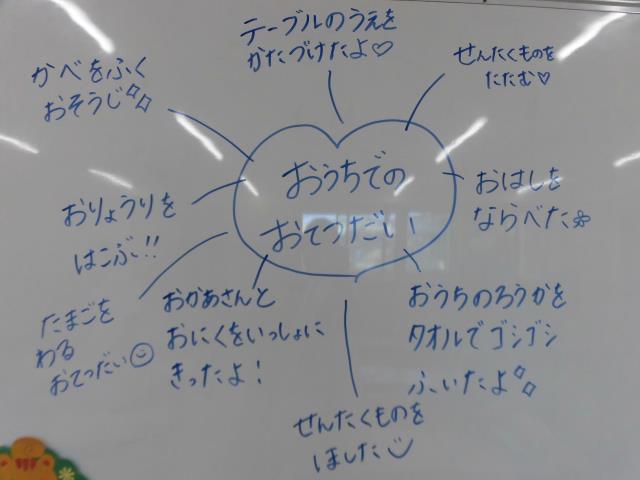 おうちでの
おてつだい
テーブルのうえを
かたづけたよ♡
せんたくものを
たたむ♡
おはしを
ならべた
おうちのろうかを
タオルでゴシゴシ
ふいたよ
せんたくものを
ほした
おかあさんと
おにくをいっしょに
きったよ!
たまごを
わる
おてつだい
おりょうりを
はこぶ!!
かべをふく
おそうじ